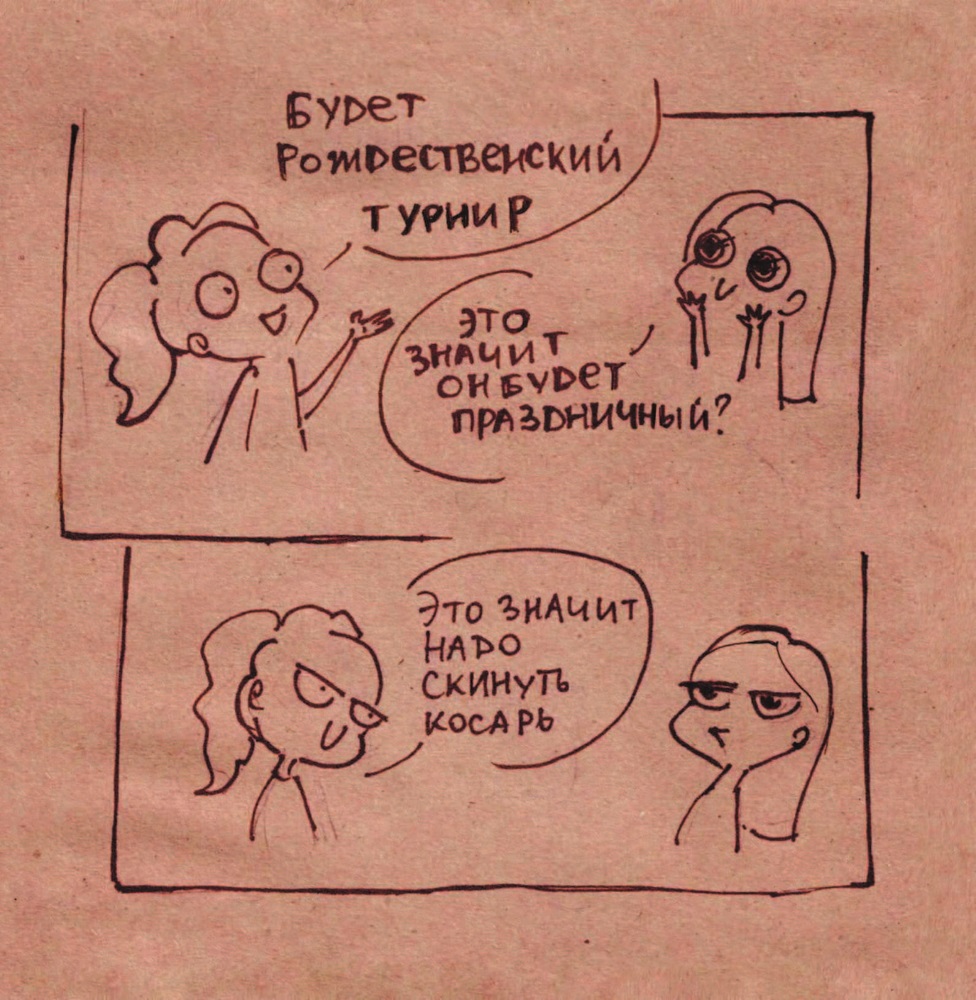 БУДЕТ
РОЖДЕСТВЕНСКИЙ
ТУРНИР
ЭТО
ЗНАЧИТ
ОН БУДЕТ
ПРАЗДНИЧНЫЙ?
ЭТО ЗНАЧИТ
НАДО
СКИНУТЬ
КОСАРЬ